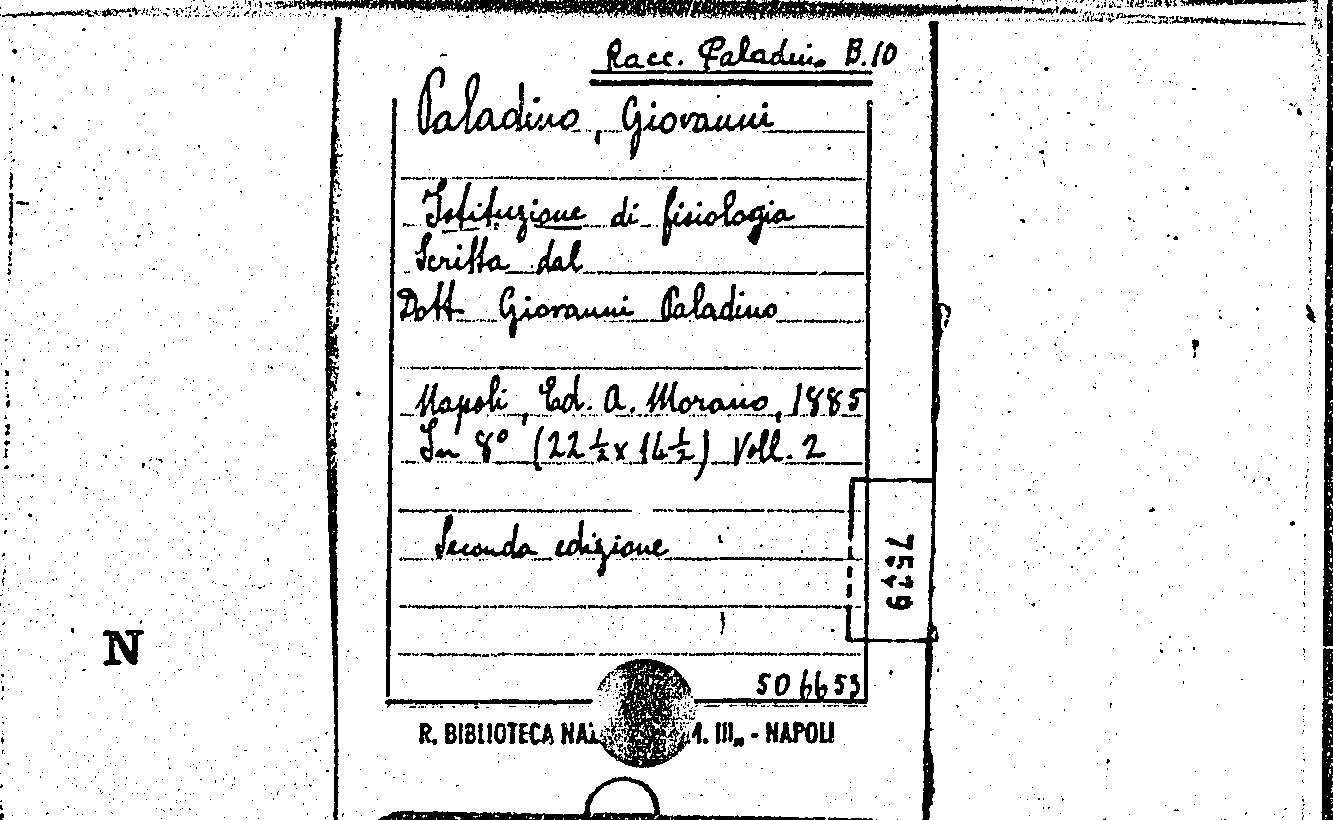 Racc. Paladino B.10
Paladino, Giovanni
Istituzione di fisiologia
Scritta dal
Dott. Giovanni Paladino
Napoli, Ed. A. Morano, 1885
In 8° (22 ½ x 14 ½) Voll. 2
Seconda edizione
N
506653
R. BIBLIOTECA III„ - NAPOLI